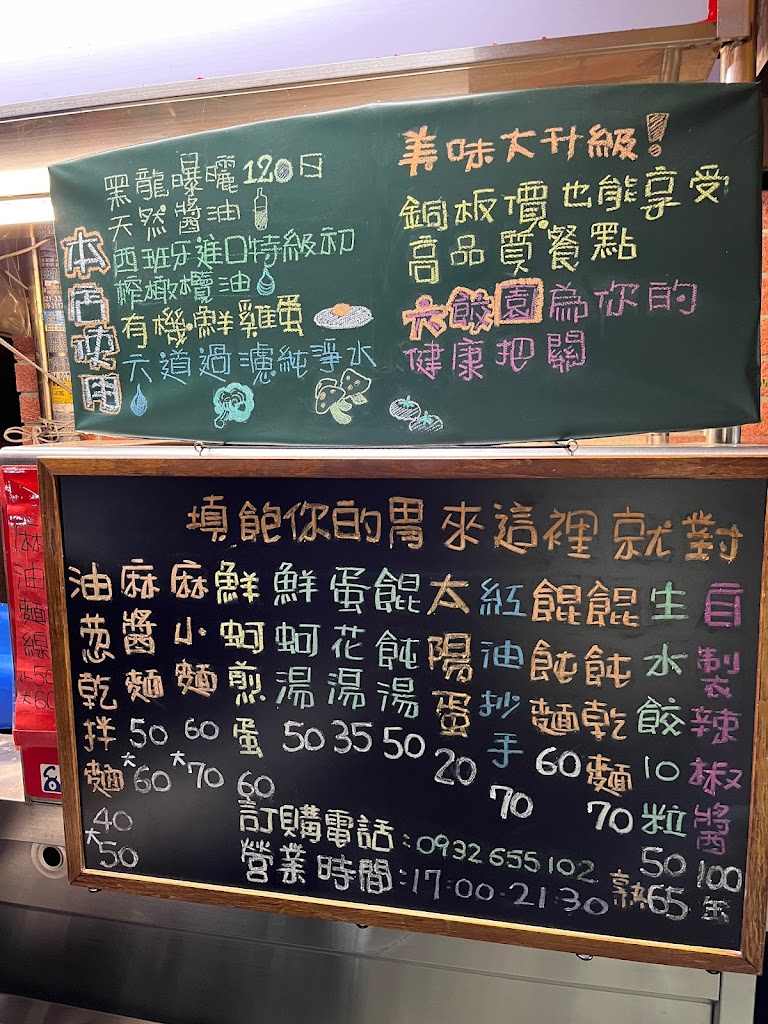 美味大升級!
銅板價也能享受
高品質餐點
六餃園為你的
健康把關
本店使用
黑龍曝曬120日
天然醬油
西班牙進口特級初
榨橄欖油
有機鮮雞蛋
六道過濾純淨水
填飽你的胃來這裡就對
自製辣椒醬 100 缶
生水餃10粒 50 熟65
餛飩乾麵 70
餛飩麵 60
紅油抄手 70
太陽蛋 20
餛飩湯 50
蛋花湯 35
鮮蚵湯 50
鮮蚵煎蛋 60
麻小麵 60 大70
麻醬麵 50 大60
油蔥乾拌麵 40 大50
訂購電話:0932655102
營業時間:17:00-21:30
麻油麵線
小50
大60